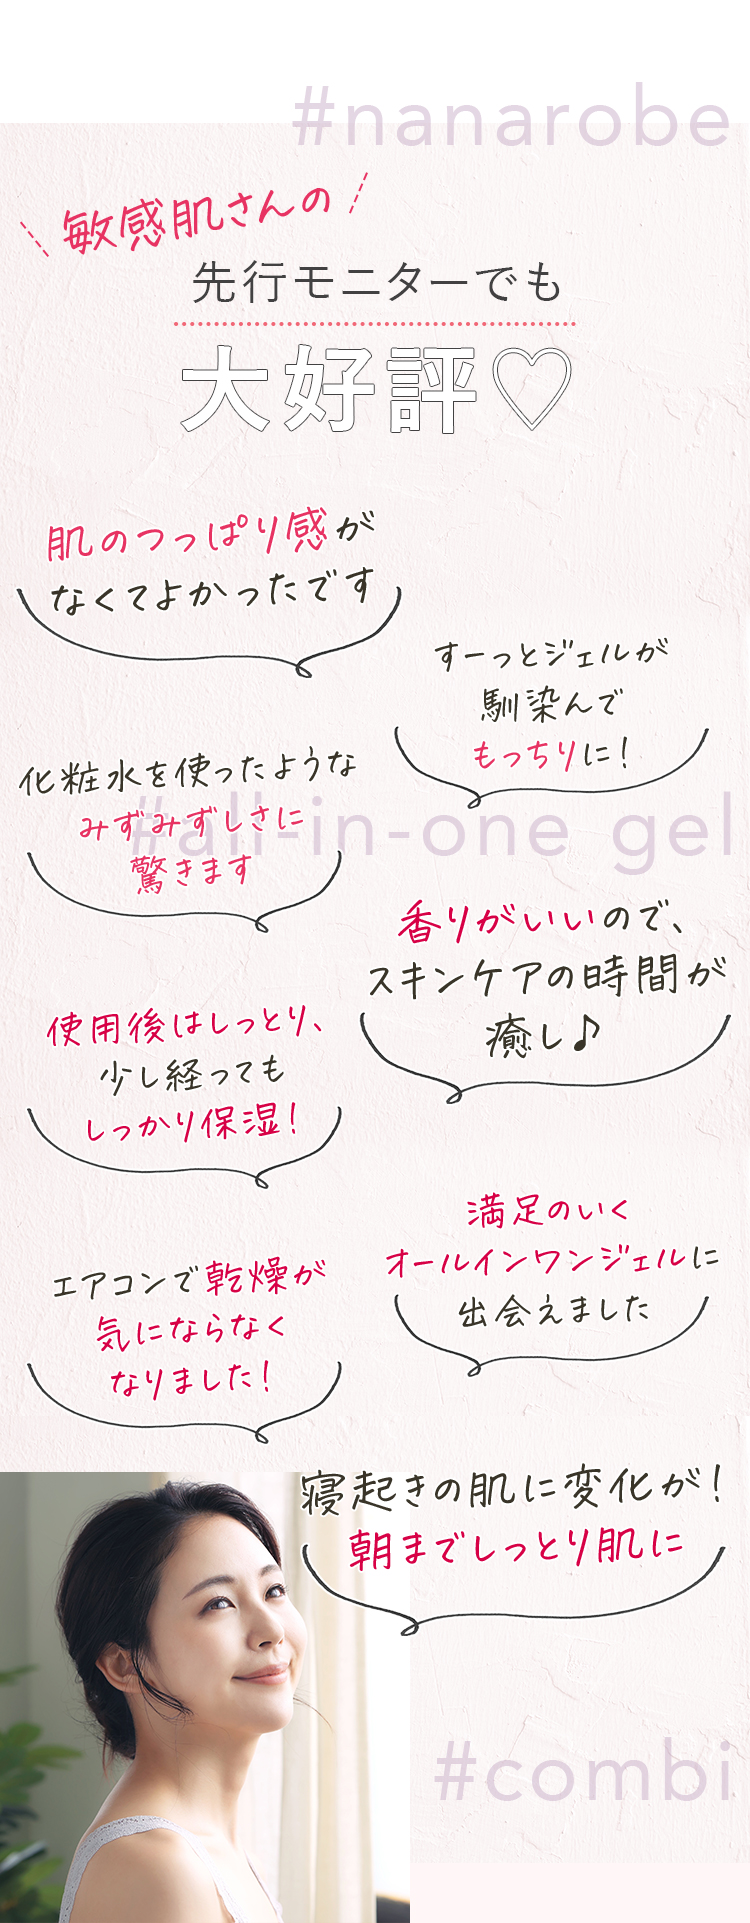 #nanarobe
敏感肌さんの
先行モニターでも
大好評♡
肌のつっぱり感が
なくてよかったです
すーっとジェルが
馴染んで
もっちりに!
化粧水を使ったような
みずみずしさに
驚きます
#all-in-one gel
香りがいいので、
スキンケアの時間が
癒し♪
使用後はしっとり、
少し経っても
しっかり保湿!
満足のいく
オールインワンジェルに
出会えました
エアコンで乾燥が
気にならなく
なりました!
寝起きの肌に変化が!
朝までしっとり肌に
#combi